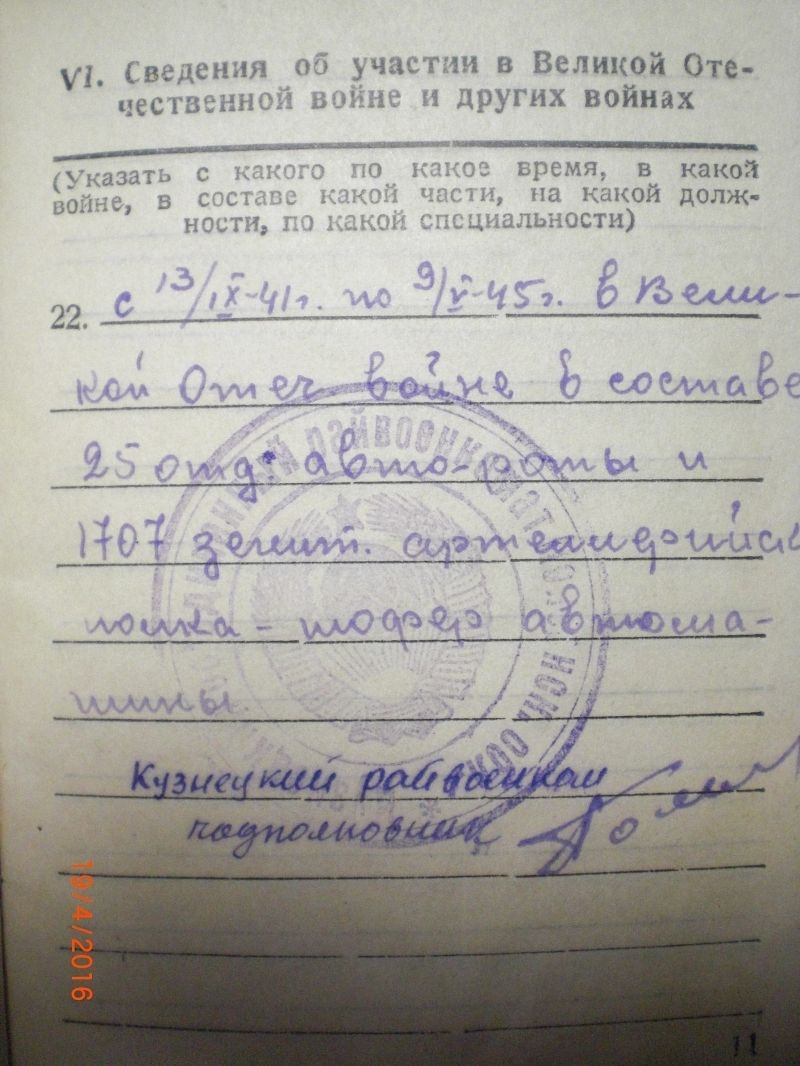 VI. Сведения об участии в Великой Оте-
чественной войне и других войнах
(Указать с какого по какое время, в какой
войне, в составе какой части, на какой долж-
ности, по какой специальности)
22. с 13/IX-41г. по 9/V-45г. в Вели-
кой Отеч войне в составе
25 отд. авто-роты и
1707 зенит. артелирийск
полка - шофер автома-
шины
Кузнецкий райвоенком
подполковник
райвоенкомат
19/4/2016
11